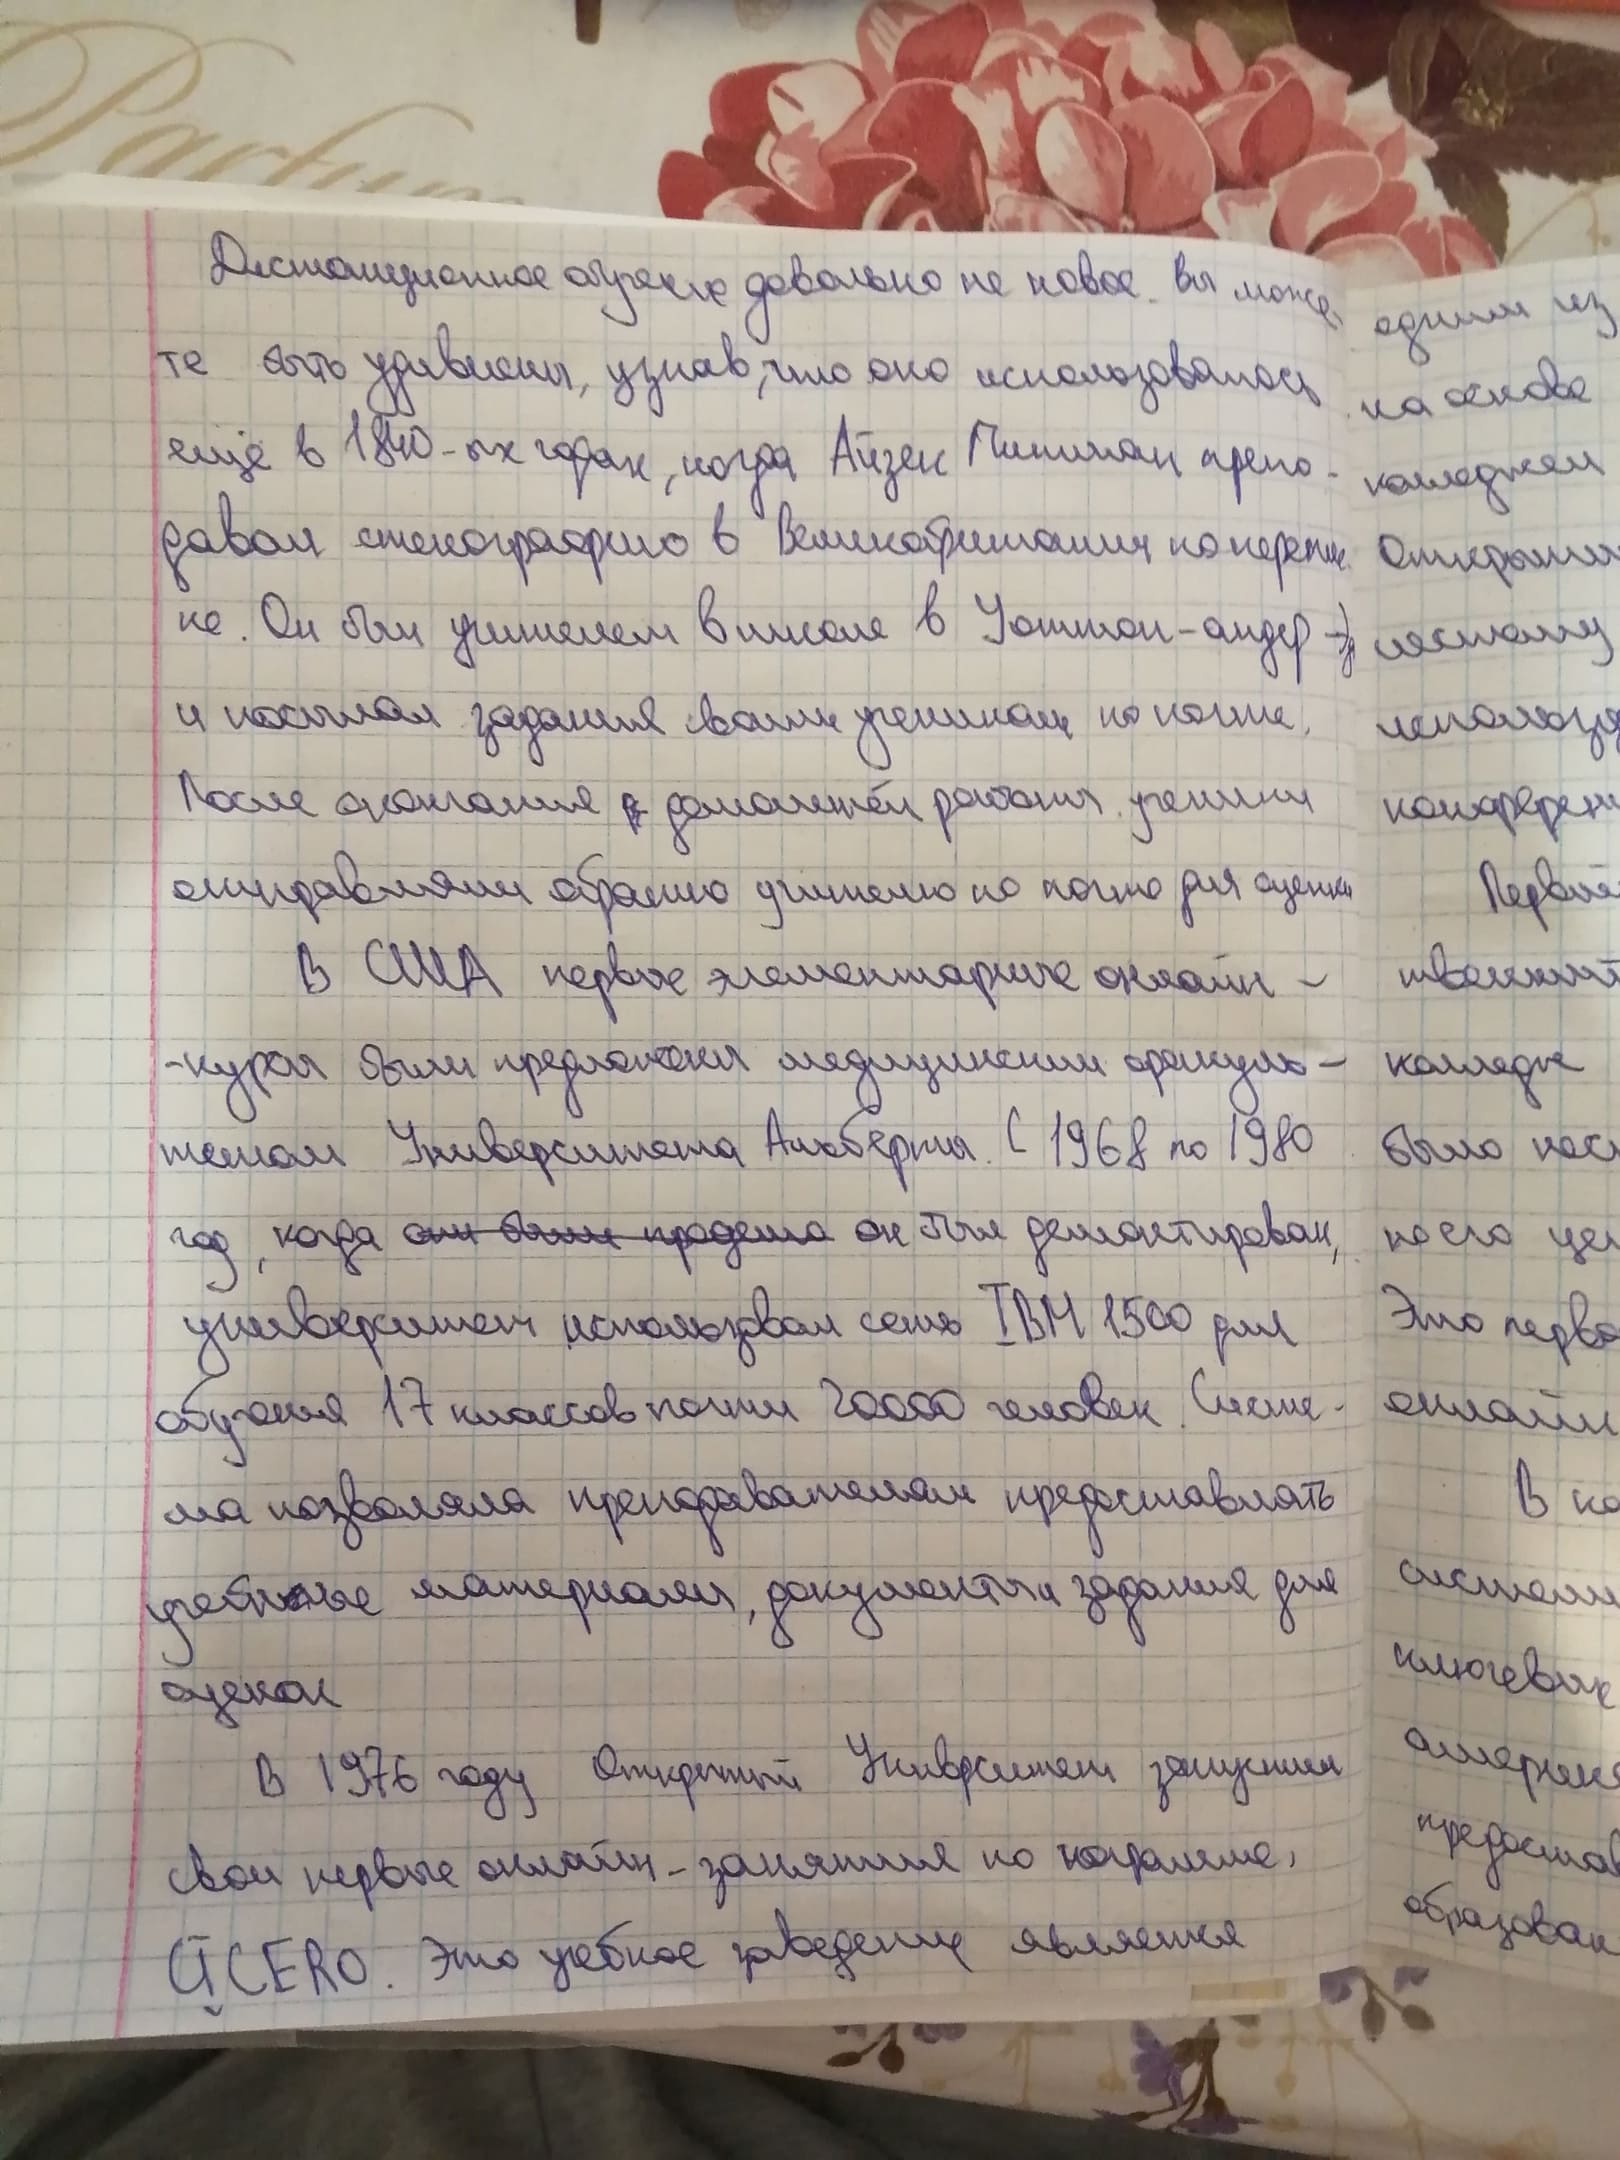 Дистанционное обучение довольно не новое. Вы може
те быть удивлены, узнав, что оно использовалось
ещё в 1840-ых годах, когда Айзек Питман препо-
давал стенографию в Великобритании по перепис
ке. Он был учителем в школе в Уоттон-андер-
и посылал задания своим ученикам по почте.
После окончания домашней работы ученики
отправляли обратно учителю по почте для оценки
В США первые элементарные онлайн-
-курсы были предложены медицинским факуль-
тетом Университета Альберты. С 1968 по 1980
год, когда они были он был демонтирован,
университет использовал сеть IBM 1500 для
обучения 17 классов почти 20000 человек. Систе-
ма позволяла преподавателям предоставлять
учебные материалы, документы и задания для
оценок
В 1976 году Открытый Университет запустил
свои первые онлайн-занятия по программе,
CICERO. Это учебное заведение является
одним из
на основе
колледжем
Открыты
местному
использу
конферен
Первый
твенный
колледж
было пос
после
Это перво
онлайн
В ко
систем
ключевых
америка
предостав
образован